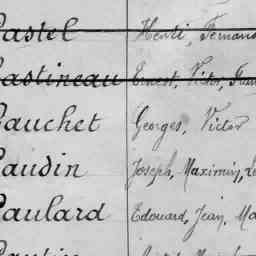 Castel Henri, Fernand
Castineau Ernest, Victor, Fran
Cauchet Georges, Victor
Caudin Joseph, Maximin, Lé
Caulard Edouard, Jean, Ma